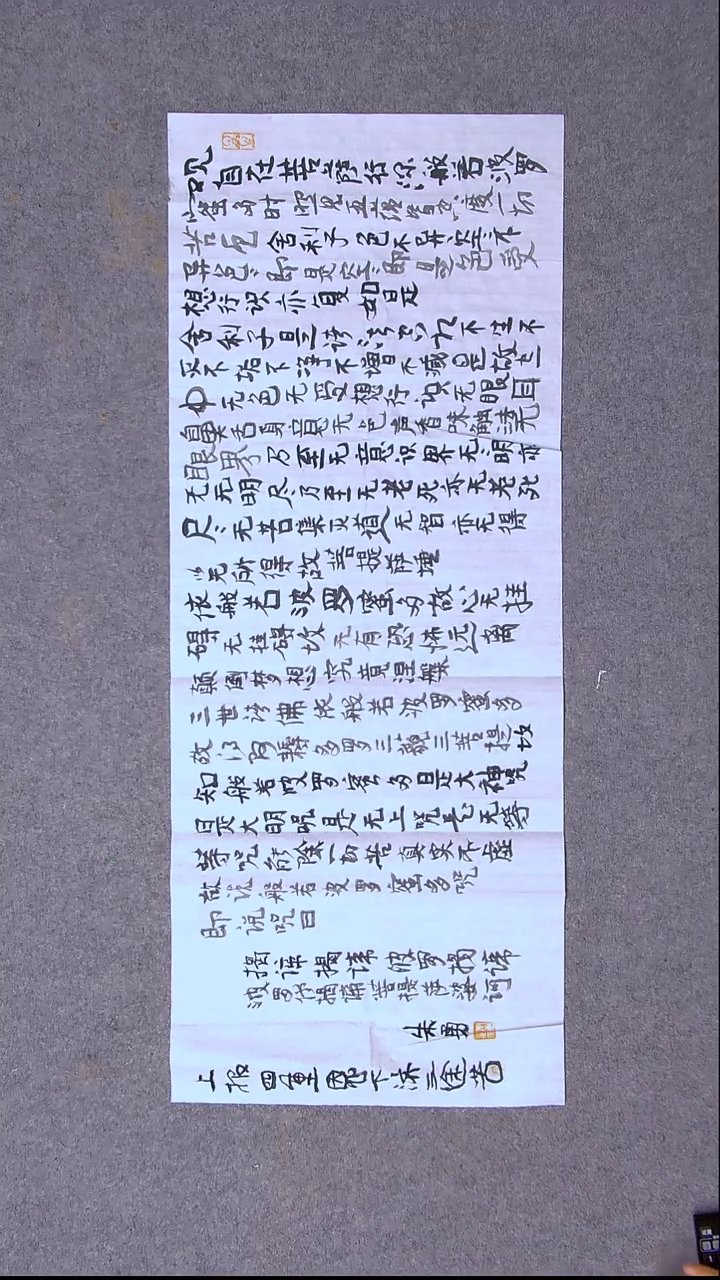 观自在菩萨行深般若波罗
蜜多时照见五蕴皆空度一切
苦厄舍利子色不异空空不
异色色即是空空即是色受
想行识亦复如是
舍利子是诸法空相不生不
灭不垢不净不增不减是故空
中无色无受想行识无眼耳
鼻舌身意无色声香味触法无
眼界乃至无意识界无无明亦
无无明尽乃至无老死亦无老死
尽无苦集灭道无智亦无得
以无所得故菩提萨埵
依般若波罗蜜多故心无挂
碍无挂碍故无有恐怖远离
颠倒梦想究竟涅槃
三世诸佛依般若波罗蜜多
故得阿耨多罗三藐三菩提故
知般若波罗蜜多是大神咒
是大明咒是无上咒是无等
等咒能除一切苦真实不虚
故说般若波罗蜜多咒
即说咒曰
揭谛揭谛波罗揭谛
波罗僧揭谛菩提萨婆诃
朱勇
上报四重恩下济三途苦